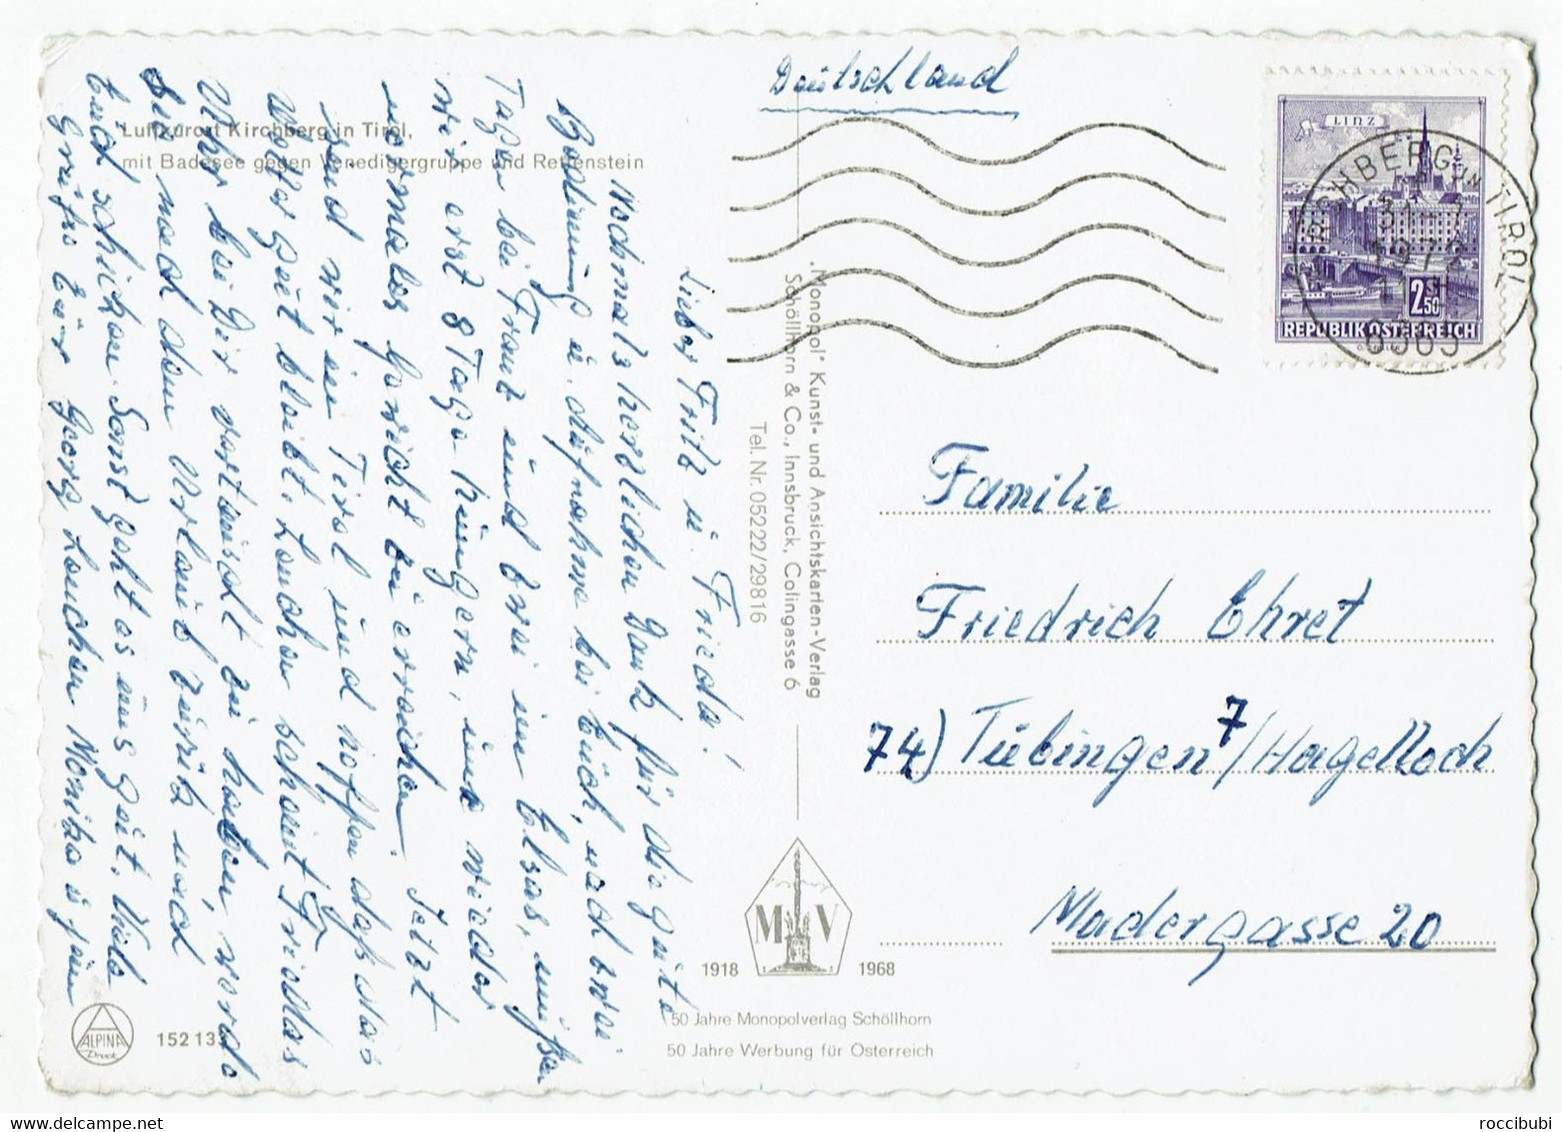 Deutschland
LINZ
2.50
REPUBLIK ÖSTERREICH
KIRCHBERG IN TIROL
1972
6365
Luftkurort Kirchberg in Tirol,
mit Badesee gegen Venedigergruppe und Rettenstein
Lieber Fritz u. Frieda!
Nochmals herzlichen Dank für die gute
Bedienung u. Aufnahme bei Euch, nach zwei
Tagen bei Franz und drei im Elsas, mußten
wir erst 8 Tage hungern, um wieder
normales Gewicht zu erreichen. Jetzt
sind wir in Tirol und hoffen daß das
Wetter gut bleibt. Lenchen scheint Friedas
Uhr bei Dir vertauscht zu haben, werde
Sie nach dem Urlaub zurück und
Euch schicken. Sonst geht es uns gut. Viele
Grüße Eure Georg Lenchen Monika
„Monopol“ Kunst- und Ansichtskarten-Verlag
Schöllhorn & Co., Innsbruck, Colingasse 6
Tel. Nr. 05222/29816
Familie
Friedrich Ehret
74) Tübingen 7/Hagelloch
Madergasse 20
M V
1918 1968
50 Jahre Monopolverlag Schöllhorn
50 Jahre Werbung für Österreich
ALPINA
Druck
152 133
roccibubi